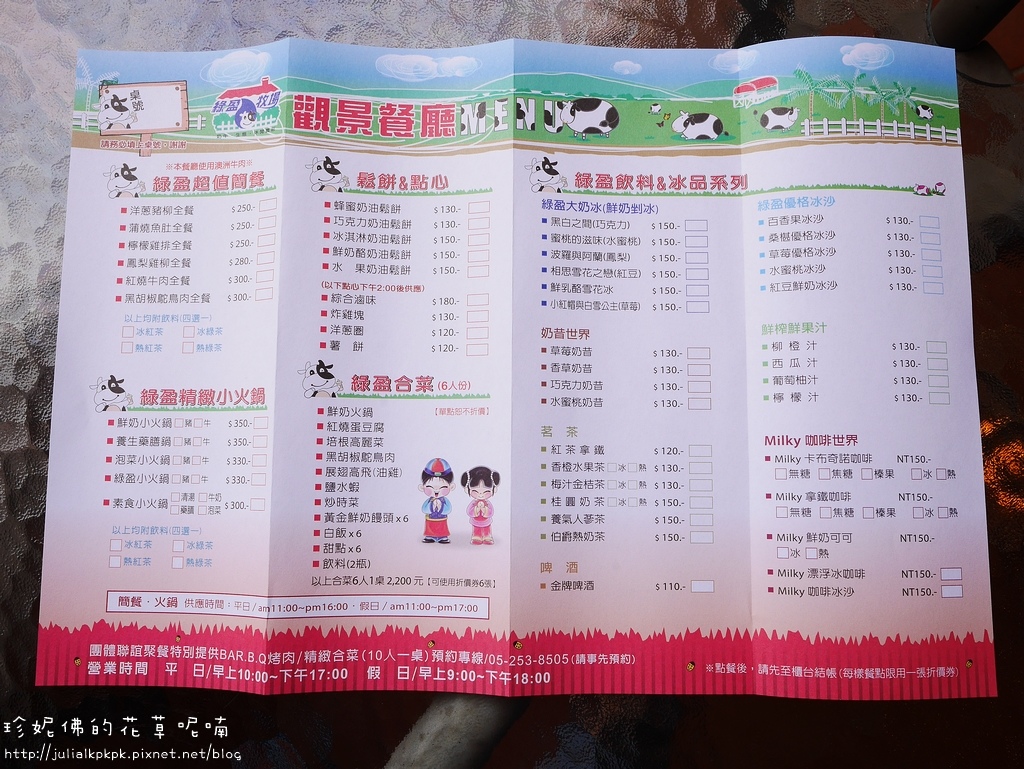 桌號
請務必填上桌號，謝謝
綠盈牧場
觀景餐廳MENU
※本餐廳使用澳洲牛肉※
綠盈超值簡餐
洋蔥豬柳全餐 $250.-
蒲燒魚肚全餐 $250.-
檸檬雞排全餐 $250.-
鳳梨雞柳全餐 $280.-
紅燒牛肉全餐 $300.-
黑胡椒鴕鳥肉全餐 $300.-
以上均附飲料(四選一)
冰紅茶 冰綠茶
熱紅茶 熱綠茶
綠盈精緻小火鍋
鮮奶小火鍋 豬 牛 $350.-
養生藥膳鍋 豬 牛 $350.-
泡菜小火鍋 豬 牛 $330.-
綠盈小火鍋 豬 牛 $330.-
素食小火鍋 清湯 牛奶 藥膳 泡菜 $300.-
以上均附飲料(四選一)
冰紅茶 冰綠茶
熱紅茶 熱綠茶
鬆餅&點心
蜂蜜奶油鬆餅 $130.-
巧克力奶油鬆餅 $130.-
冰淇淋奶油鬆餅 $150.-
鮮奶酪奶油鬆餅 $150.-
水 果奶油鬆餅 $150.-
(以下點心下午2:00後供應)
綜合滷味 $180.-
炸雞塊 $130.-
洋蔥圈 $120.-
薯 餅 $120.-
綠盈合菜(6人份)
【單點恕不折價】
鮮奶火鍋
紅燒蛋豆腐
培根高麗菜
黑胡椒鴕鳥肉
展翅高飛(油雞)
鹽水蝦
炒時菜
黃金鮮奶饅頭x6
白飯x6
甜點x6
飲料(2瓶)
以上合菜6人1桌2,200元【可使用折價券6張】
簡餐．火鍋 供應時間：平日/am11:00~pm16:00．假日/am11:00~pm17:00
綠盈飲料&冰品系列
綠盈大奶冰(鮮奶剉冰)
黑白之間(巧克力) $150.-
蜜桃的滋味(水蜜桃) $150.-
波羅與阿蘭(鳳梨) $150.-
相思雪花之戀(紅豆) $150.-
鮮乳酪雪花冰 $150.-
小紅帽與白雪公主(草莓) $150.-
奶昔世界
草莓奶昔 $130.-
香草奶昔 $130.-
巧克力奶昔 $130.-
水蜜桃奶昔 $130.-
茗 茶
紅茶拿鐵 $120.-
香橙水果茶 冰 熱 $130.-
梅汁金桔茶 冰 熱 $130.-
桂圓奶茶 冰 熱 $150.-
養氣人蔘茶 $150.-
伯爵熱奶茶 $150.-
啤 酒
金牌啤酒 $110.-
綠盈優格冰沙
百香果冰沙 $130.-
桑椹優格冰沙 $130.-
草莓優格冰沙 $130.-
水蜜桃冰沙 $130.-
紅豆鮮奶冰沙 $130.-
鮮榨鮮果汁
柳橙汁 $130.-
西瓜汁 $130.-
葡萄柚汁 $130.-
檸檬汁 $130.-
Milky 咖啡世界
Milky 卡布奇諾咖啡 NT150.-
無糖 焦糖 榛果 冰 熱
Milky 拿鐵咖啡 NT150.-
無糖 焦糖 榛果 冰 熱
Milky 鮮奶可可 NT150.-
冰 熱
Milky 漂浮冰咖啡 NT150.-
Milky 咖啡冰沙 NT150.-
團體聯誼聚餐特別提供BAR.B.Q烤肉/精緻合菜(10人一桌)預約專線/05-253-8505(請事先預約)
營業時間 平 日/早上10:00~下午17:00 假 日/早上9:00~下午18:00
※點餐後，請先至櫃台結帳(每樣餐點限用一張折價券)
珍妮佛的花草呢喃
http://julialkpkpk.pixnet.net/blog